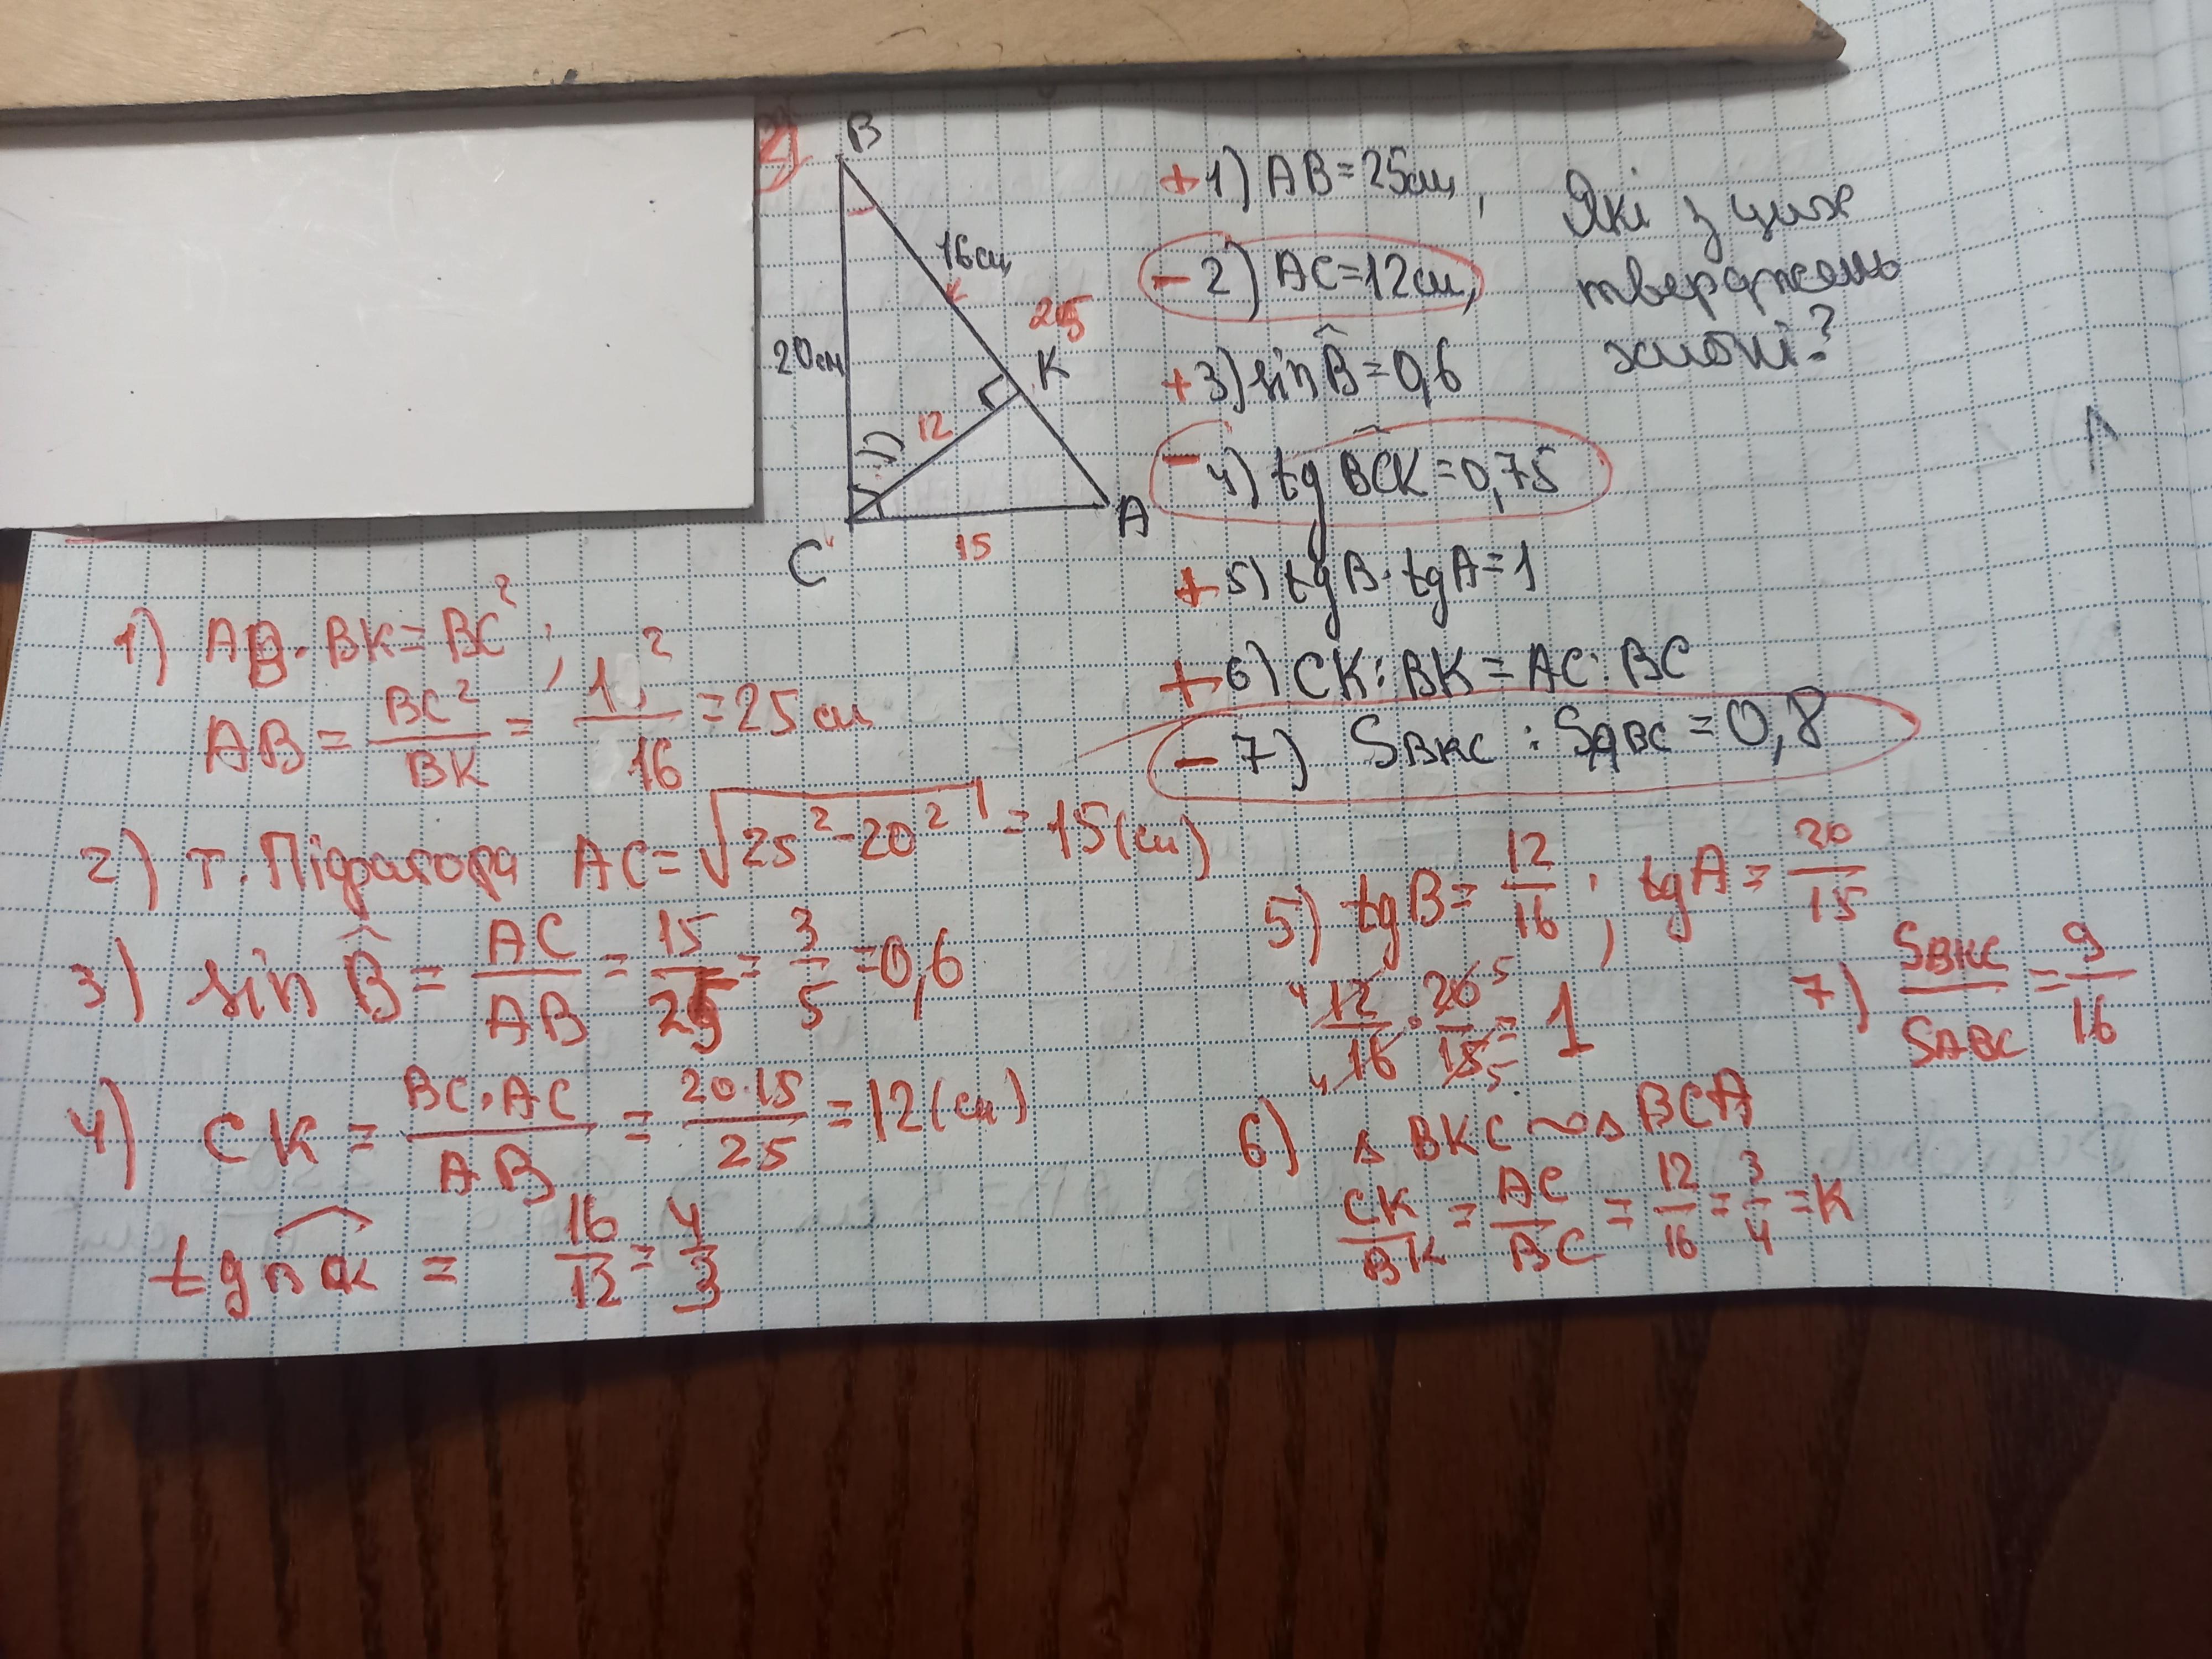 2)
B
16см
25
20см
K
12
C
15
A
+ 1) AB=25см,
- 2) AC=12см,
+ 3) sin B̂=0,6
- 4) tg BCK=0,75
+ 5) tgB·tgA=1
+ 6) CK:BK=AC:BC
- 7) SBKC : SABC=0,8
Які з цих
тверджень
хибні?
1) AB·BK=BC²;
AB= BC²/BK = /16 =25см
2) т. Піфагора AC=√25²-20² =15(см)
3) sin B̂= AC/AB = 15/25 = 3/5 =0,6
4) CK= BC·AC/AB = 20·15/25 =12(см)
tg = 16/12 = 4/3
5) tgB= 12/16 ; tgA= 20/15
12/16 · 20/15 = 1
6) ∆ BKC ~ ∆ BCA
CK/BK = AC/BC = 12/16 = 3/4 =K
7) SBKC/SABC = 9/16